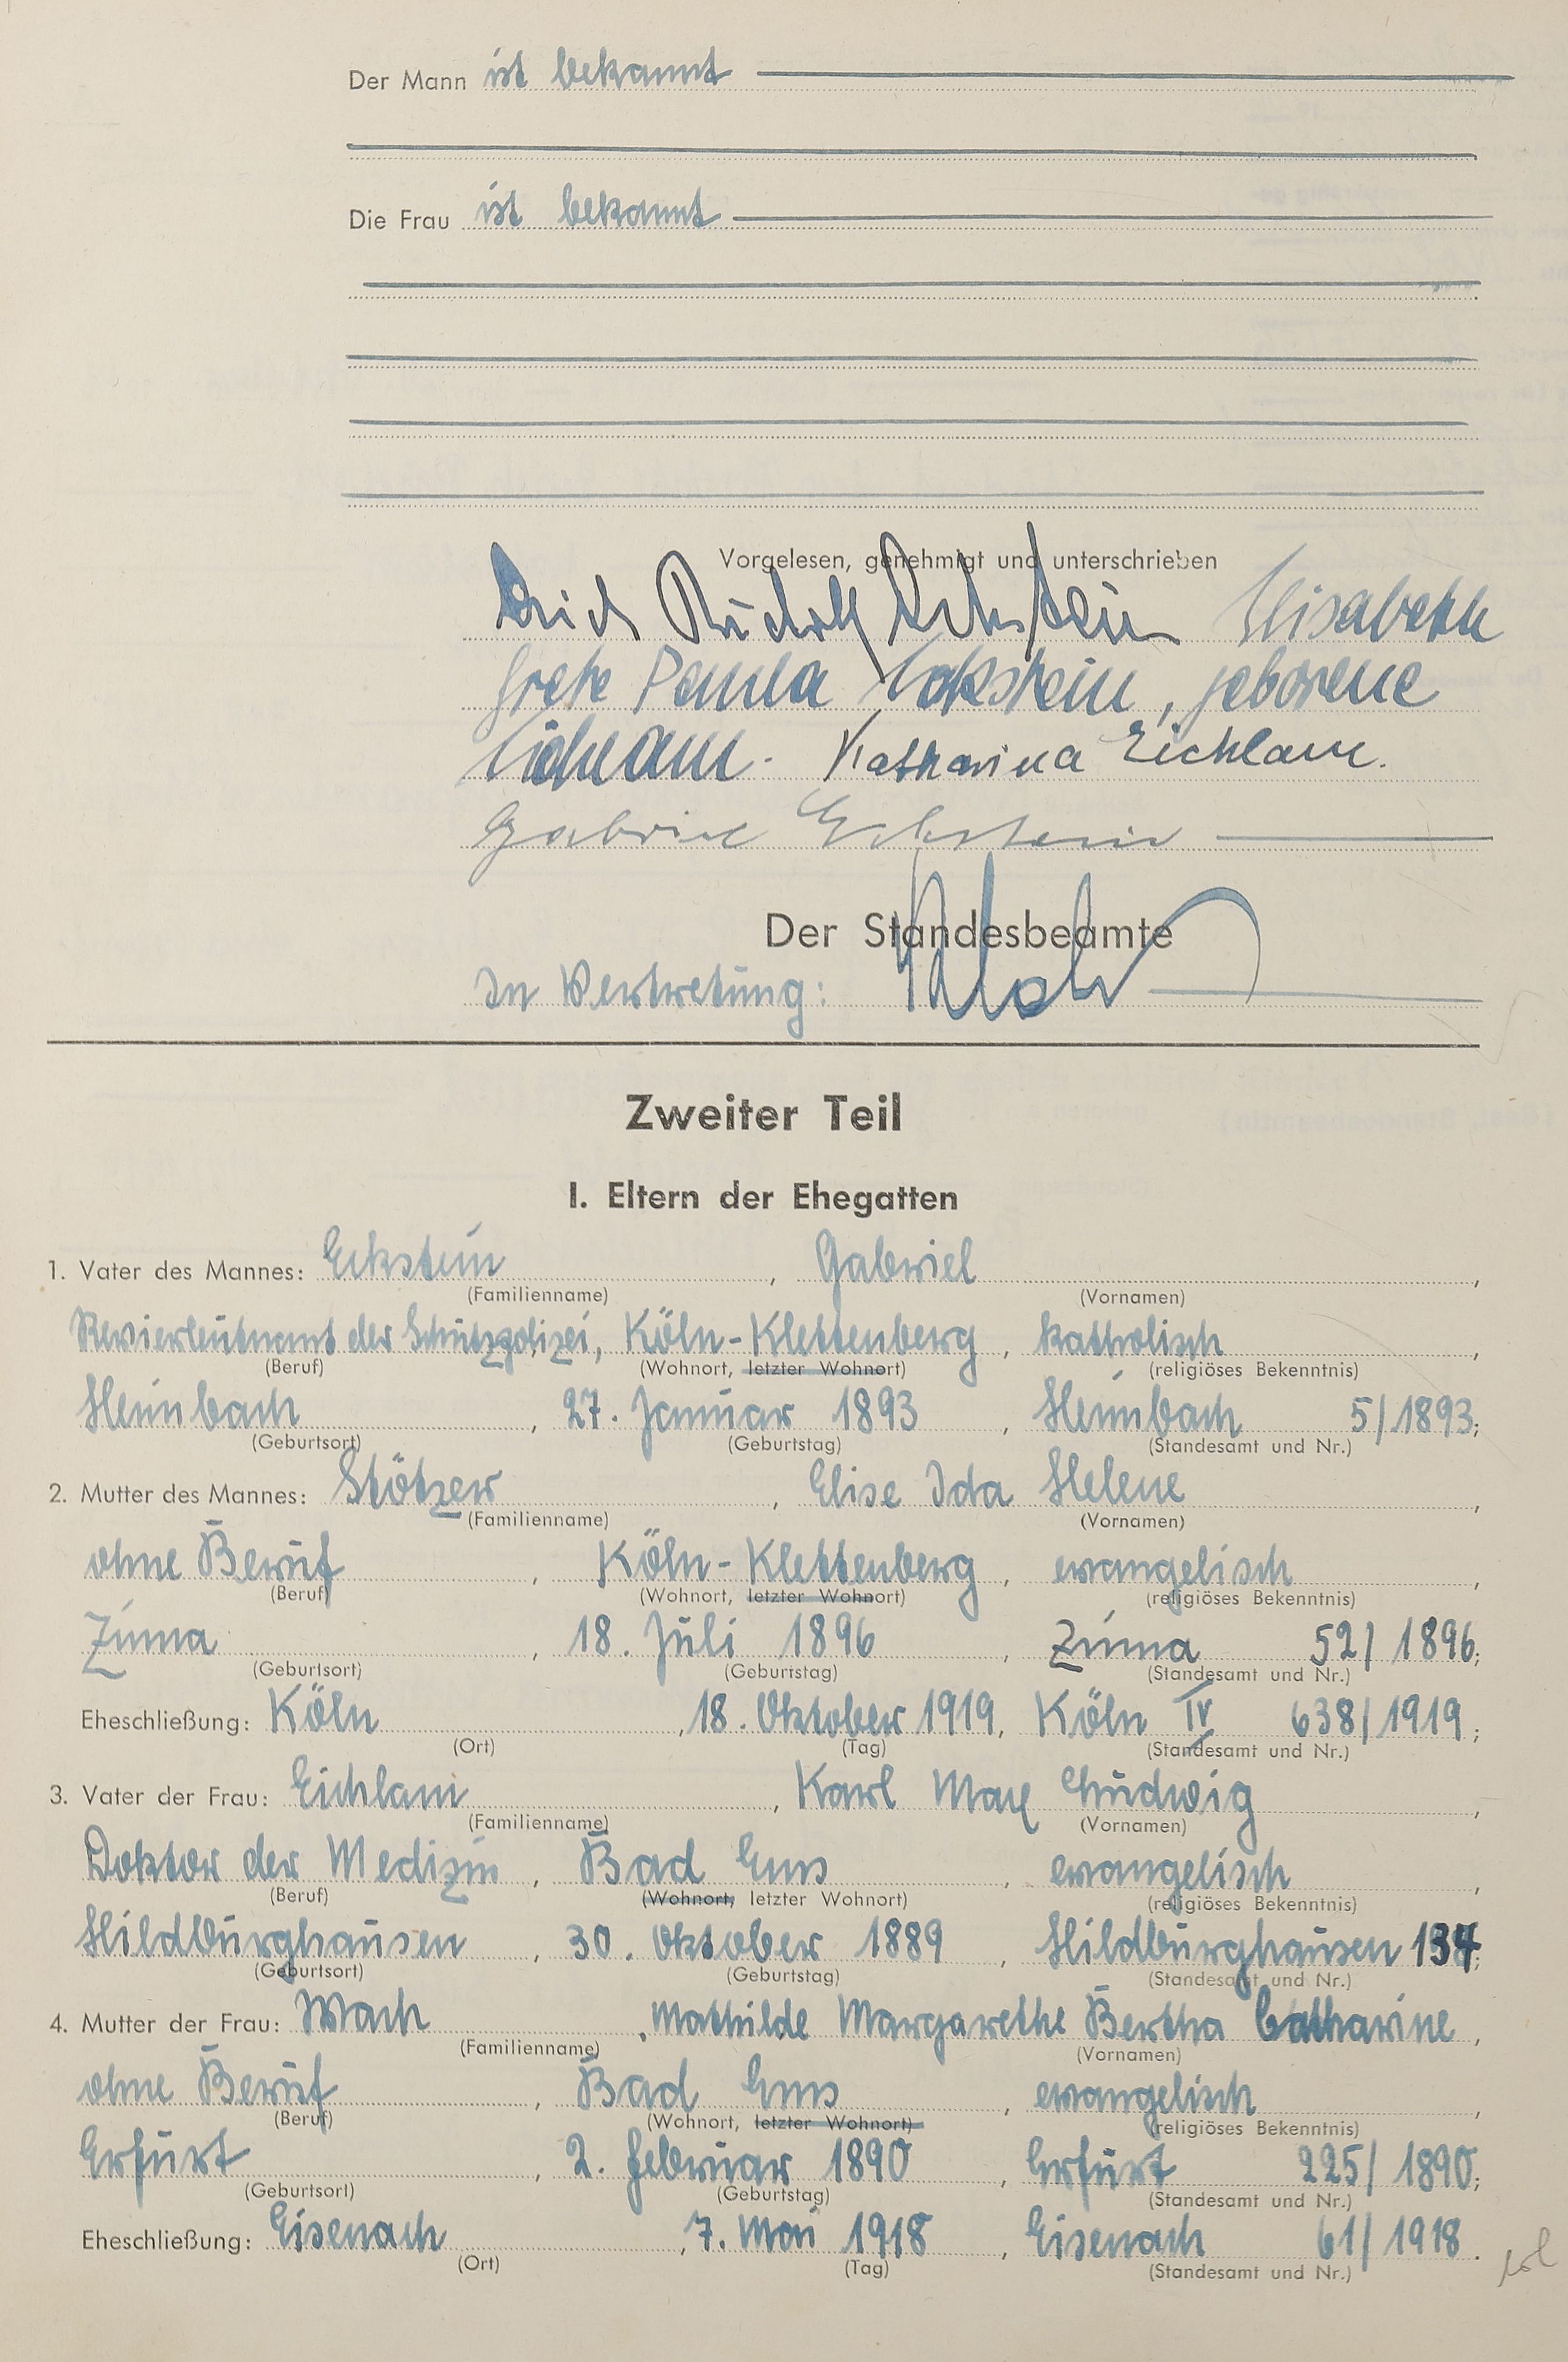 Der Mann ist bekannt
Die Frau ist bekannt
Vorgelesen, genehmigt und unterschrieben
Erich Rudolf Eckstein Elisabeth
Grete Paula Eckstein, geborene
Eichlam. Katharina Eichlam.
Gabriel Eckstein
Der Standesbeamte
In Vertretung:
Zweiter Teil
I. Eltern der Ehegatten
1. Vater des Mannes: Eckstein, Gabriel,
(Familienname) (Vornamen)
Revierleutnant der Schutzpolizei, Köln-Klettenberg, katholisch,
(Beruf) (Wohnort, letzter Wohnort) (religiöses Bekenntnis)
Heimbach, 27. Januar 1893, Heimbach 5/1893;
(Geburtsort) (Geburtstag) (Standesamt und Nr.)
2. Mutter des Mannes: Stötzer, Elise Ida Helene,
(Familienname) (Vornamen)
ohne Beruf, Köln-Klettenberg, evangelisch,
(Beruf) (Wohnort, letzter Wohnort) (religiöses Bekenntnis)
Zimma, 18. Juli 1896, Zimma 52/1896;
(Geburtsort) (Geburtstag) (Standesamt und Nr.)
Eheschließung: Köln, 18. Oktober 1919, Köln IV 638/1919;
(Ort) (Tag) (Standesamt und Nr.)
3. Vater der Frau: Eichlam, Karl Max Ludwig,
(Familienname) (Vornamen)
Doktor der Medizin, Bad Ems, evangelisch,
(Beruf) (Wohnort, letzter Wohnort) (religiöses Bekenntnis)
Hildburghausen, 30. Oktober 1889, Hildburghausen 134;
(Geburtsort) (Geburtstag) (Standesamt und Nr.)
4. Mutter der Frau: Wach, Mathilde Margarethe Bertha Catharine,
(Familienname) (Vornamen)
ohne Beruf, Bad Ems, evangelisch,
(Beruf) (Wohnort, letzter Wohnort) (religiöses Bekenntnis)
Erfurt, 2. Februar 1890, Erfurt 225/1890;
(Geburtsort) (Geburtstag) (Standesamt und Nr.)
Eheschließung: Eisenach, 7. Mai 1918, Eisenach 61/1918.
(Ort) (Tag) (Standesamt und Nr.)